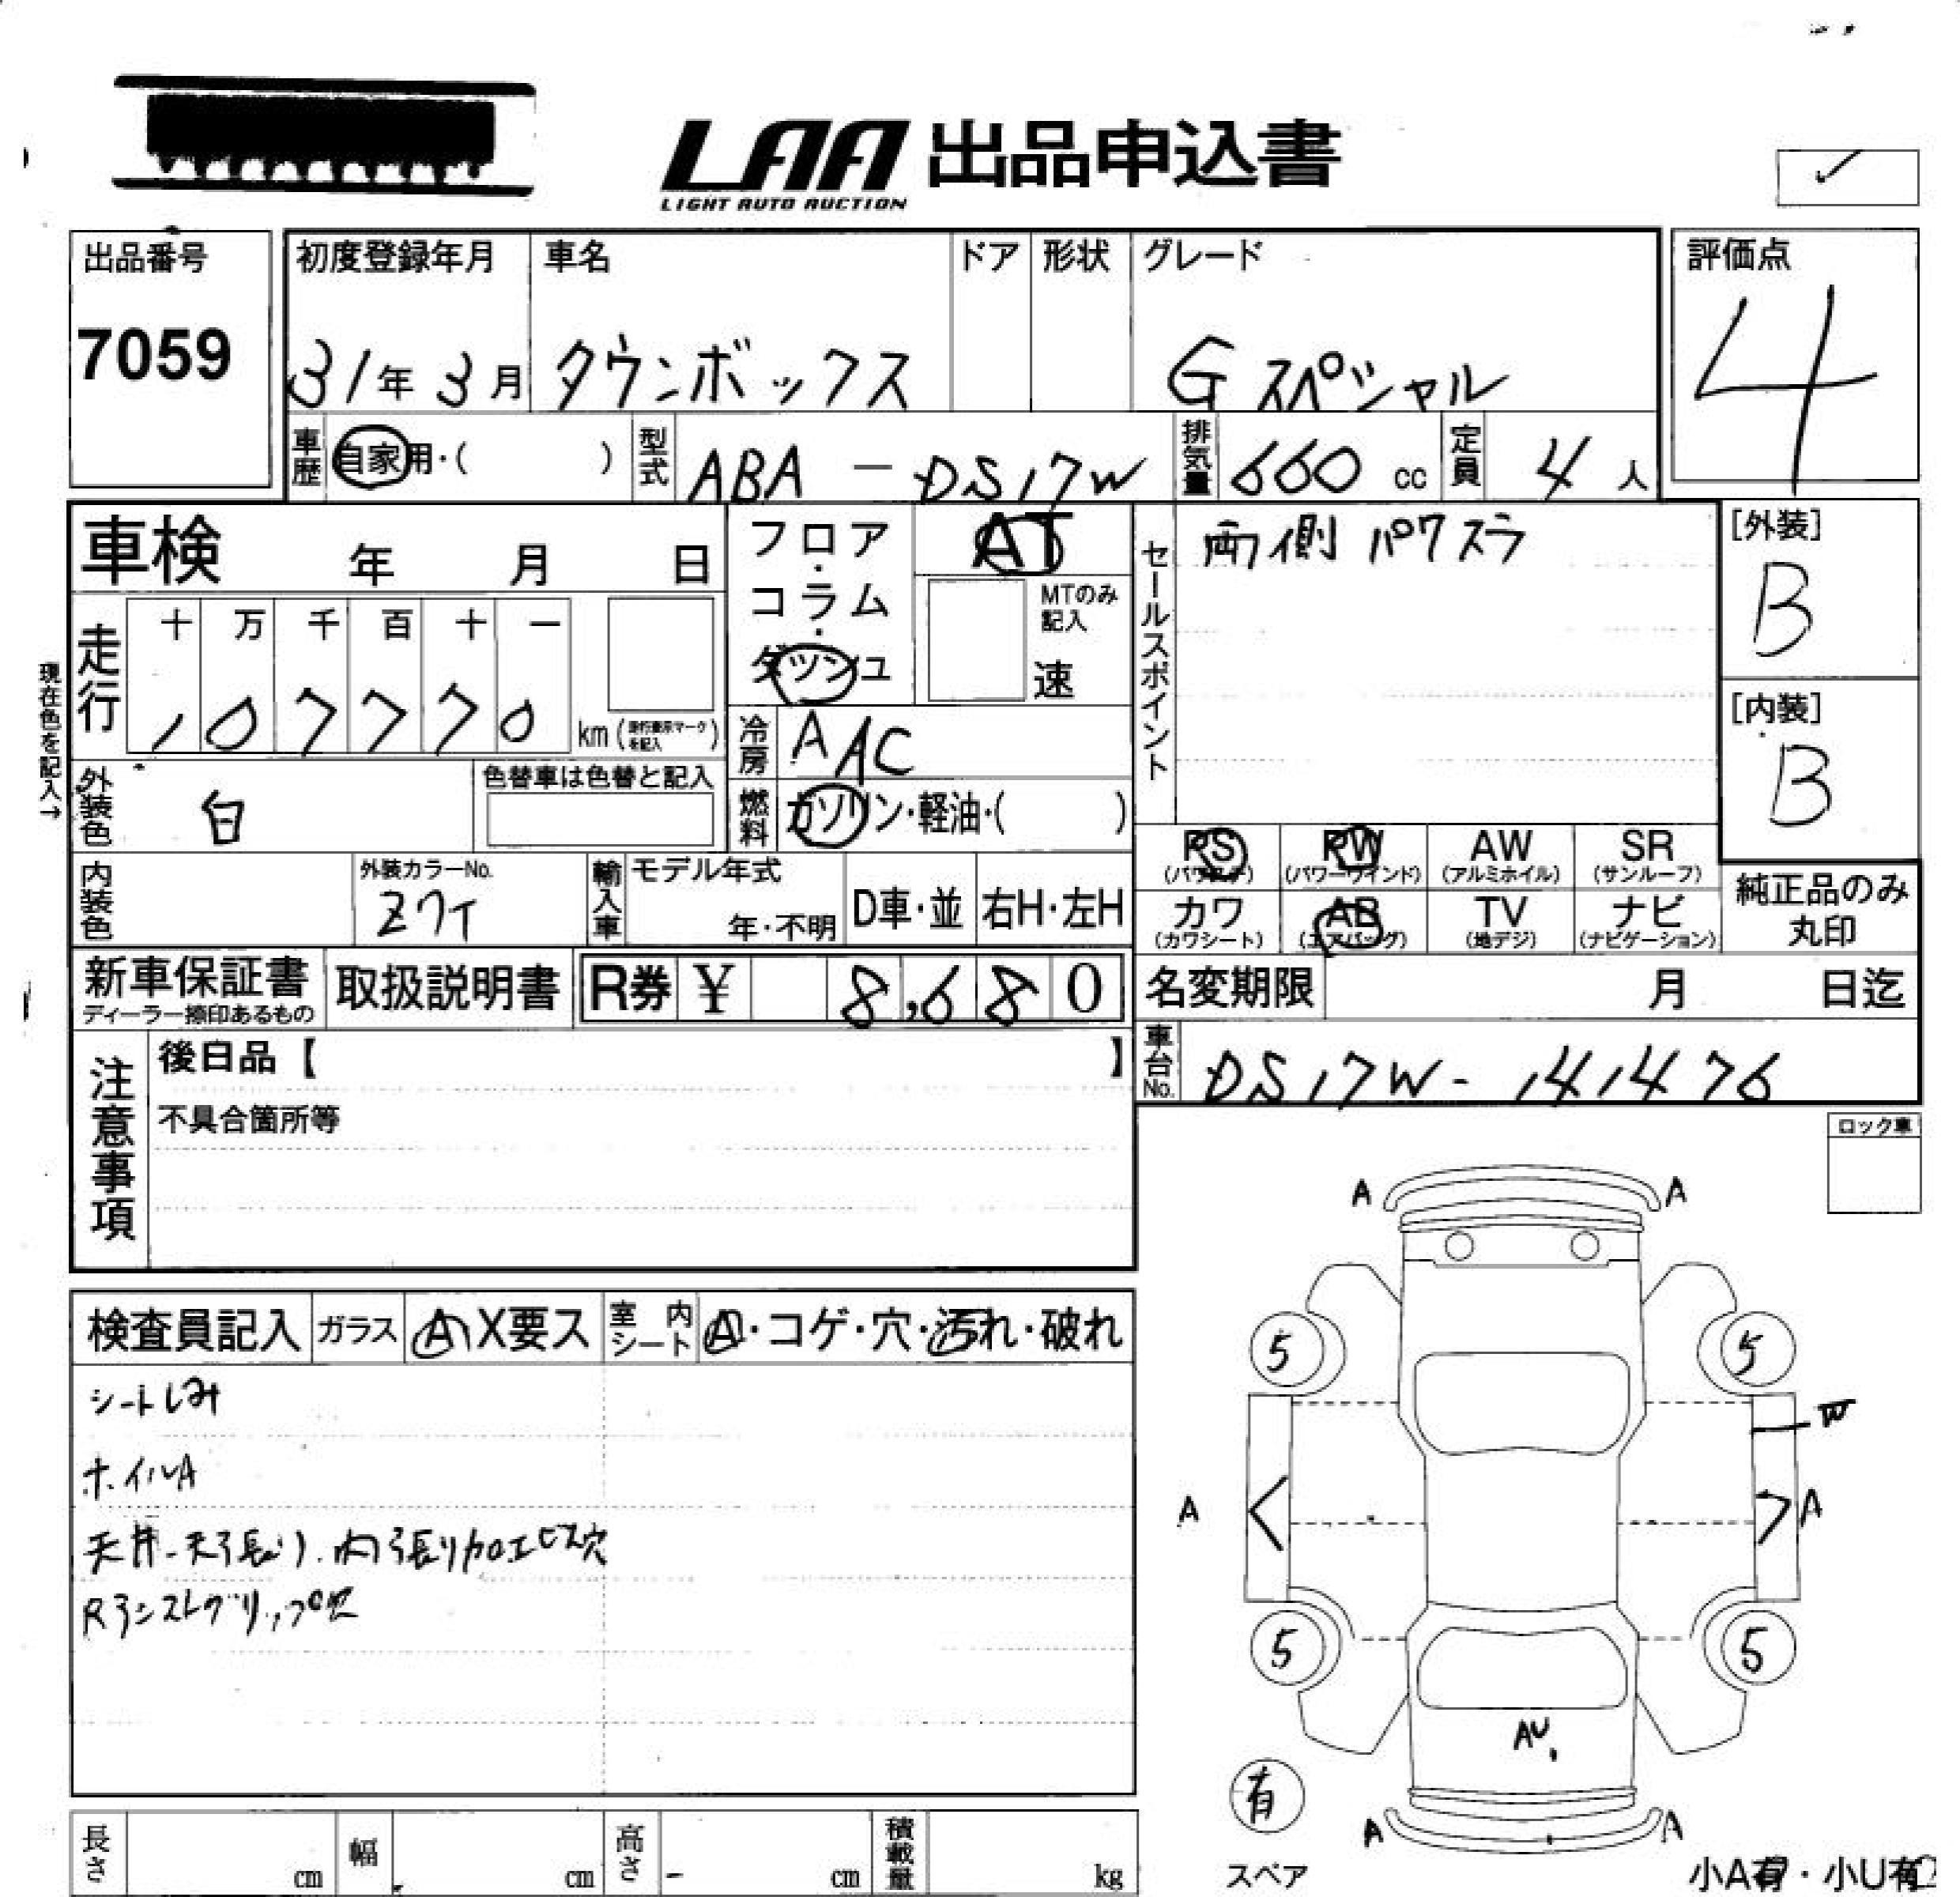 LAA 出品申込書
LIGHT AUTO AUCTION
出品番号
7059
初度登録年月
31年3月
車名
タウンボックス
ドア
形状
グレード
Gスペシャル
評価点
4
車歴
自家用・( )
型式
ABA-DS17W
排気量
660 cc
定員
4 人
車検 年 月 日
フロア・コラム・ダッシュ
AT
MTのみ記入
速
セールスポイント
両側パワスラ
[外装]
B
[内装]
B
走行
十 万 千 百 十 一
1 0 7 7 7 0
km (走行表示マークを記入)
冷房
AAC
現在色を記入→
外装色
白
色替車は色替と記入
燃料
ガソリン・軽油・( )
PS (パワステ)
PW (パワーウインド)
AW (アルミホイル)
SR (サンルーフ)
カワ (カワシート)
AB (エアバッグ)
TV (地デジ)
ナビ (ナビゲーション)
純正品のみ
丸印
内装色
外装カラーNo.
Z7T
輸入車
モデル年式
年・不明
D車・並
右H・左H
新車保証書
ディーラー捺印あるもの
取扱説明書
R券 ¥ 8,680
名変期限 月 日迄
車台No.
DS17W-141476
注意事項
後日品【 】
不具合箇所等
ロック車
検査員記入
ガラス
A X要ス
室内シート
A・コゲ・穴・汚れ・破れ
シートしみ
ホイルA
天井-天張り.内張り加工ビス穴
A A
5 5
W
A A
5 5
AU1
A A
有
スペア
小A有・小U有
長さ cm
幅 cm
高さ - cm
積載量 kg